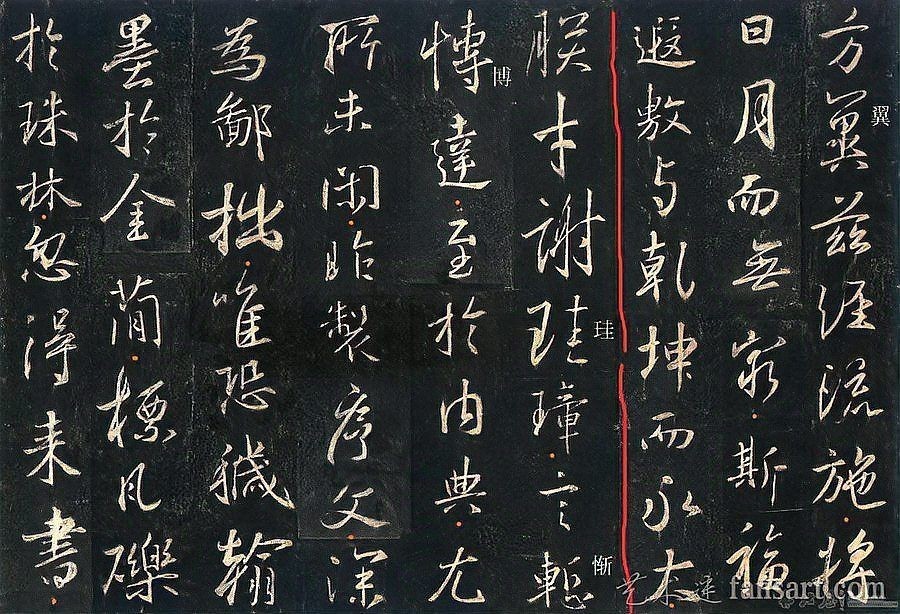 方冀茲經流施將
翼
日月而無窮斯福
遐敷与乾坤而永大
朕才謝珪璋言慙
珪
惭
博達至於内典尤
博
所未閑昨製序文深
為鄙拙唯恐穢翰
墨於金簡標瓦礫
於珠林忽得来書
fansart.com